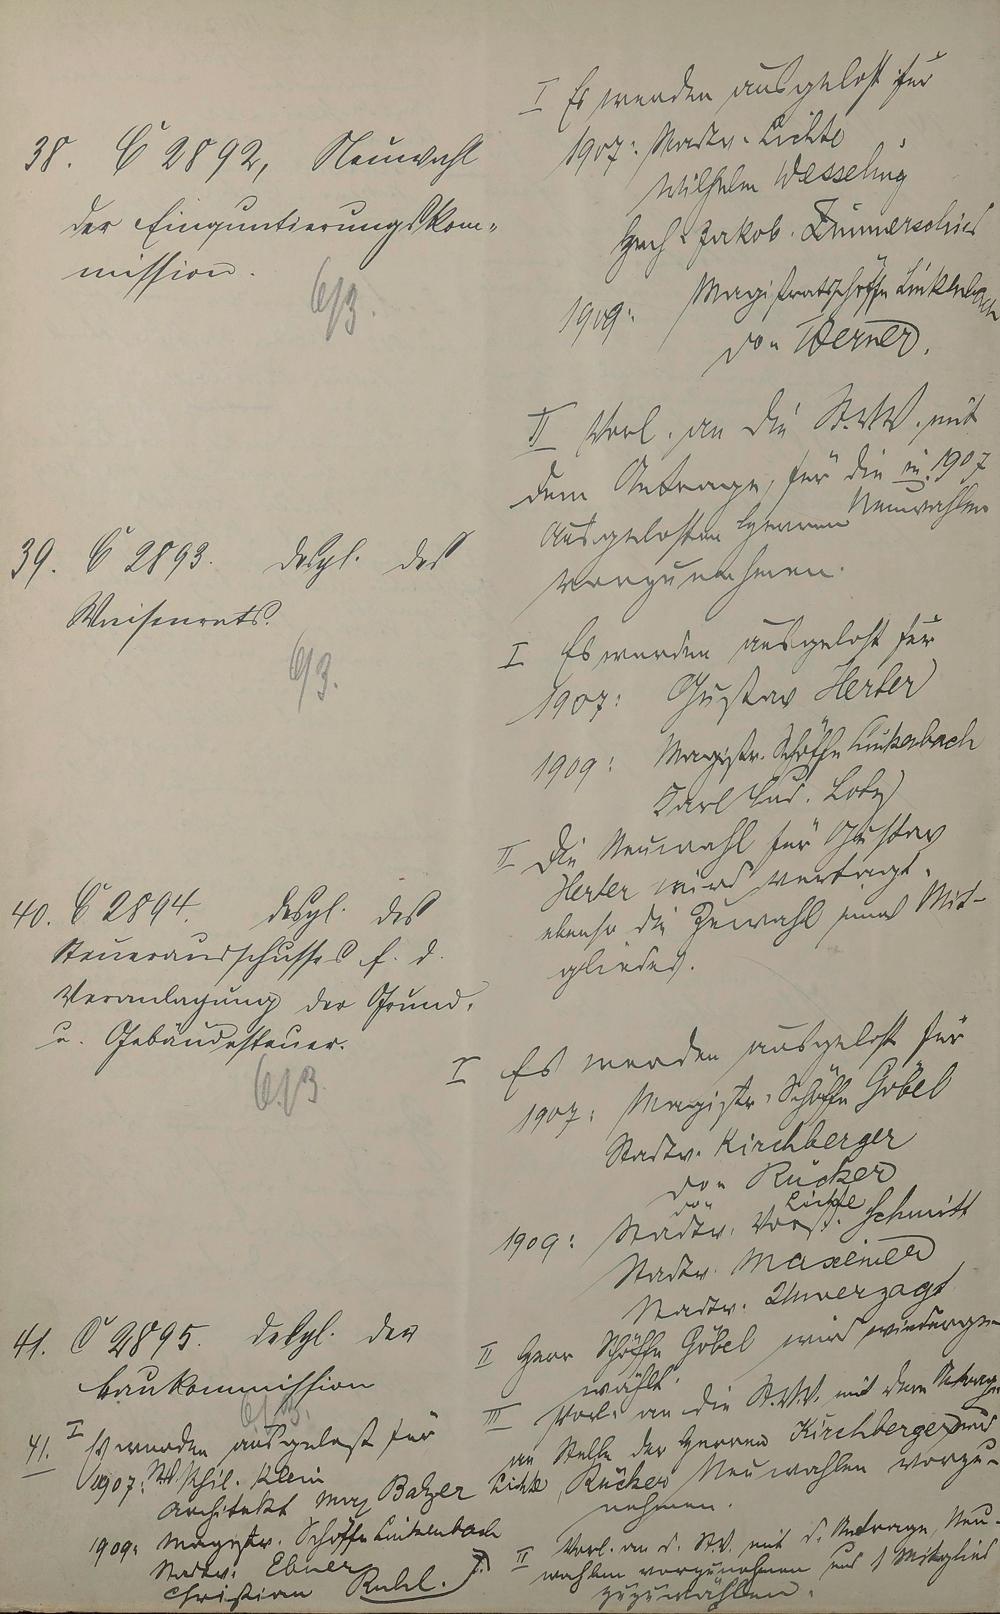 38. C 2892, Neuwahl
der Einquartierungskom-
mission.
6/3.
I Es werden ausgelost für
1907: Stadtv. Lichte
Wilhelm Wesseling
Jakob
1909: Magistratsschöffe Linkenbach
do " Werner.
II Vorl. an die St.V.V. mit
dem Antrage, für die in 1907
Ausgelosten Herren Neuwahlen
vorzunehmen.
39. C 2893. desgl. des
Waisenrats.
6/3.
I Es wurden ausgelost für
1907: Gustav Herber
1909: Magistr. Schöffe Linkenbach
Karl Lud. Lotz
II Die Neuwahl für Gustav
Herber wird vertagt,
ebenso die Zuwahl eines Mit-
gliedes.
40. C 2894. desgl. des
Steuerausschusses f. d.
Veranlagung der Grund-
u. Gebäudesteuer.
6/3
I Es werden ausgelost für
1907: Magistr. Schöffe Göbel
Stadtv. Kirchberger
do " Rücker
do " Lichte
1909: Stadtv. Vorst. Schmitt
Stadtv.
Stadtv. Unverzagt
II Herr Schöffe Göbel wird wiederge-
wählt.
III Vorl. an die St.V.V. mit dem Antrage,
an Stelle der Herren Kirchberger und
Lichte, Rücker Neuwahlen vorzu-
nehmen.
41. C 2895. desgl. der
Baukommission
6/3.
41. I Es wurden ausgelost für
1907: Phil. Klein
Architekt Max Balzer
1909: Magistr. Schöffe Linkenbach
Stadtv. Ebner
Christian Ruhl.
II Vorl. an d. St.V. mit d. Antrage, Neu-
wahlen vorzunehmen und 1 Mitglied
zuzuwählen.